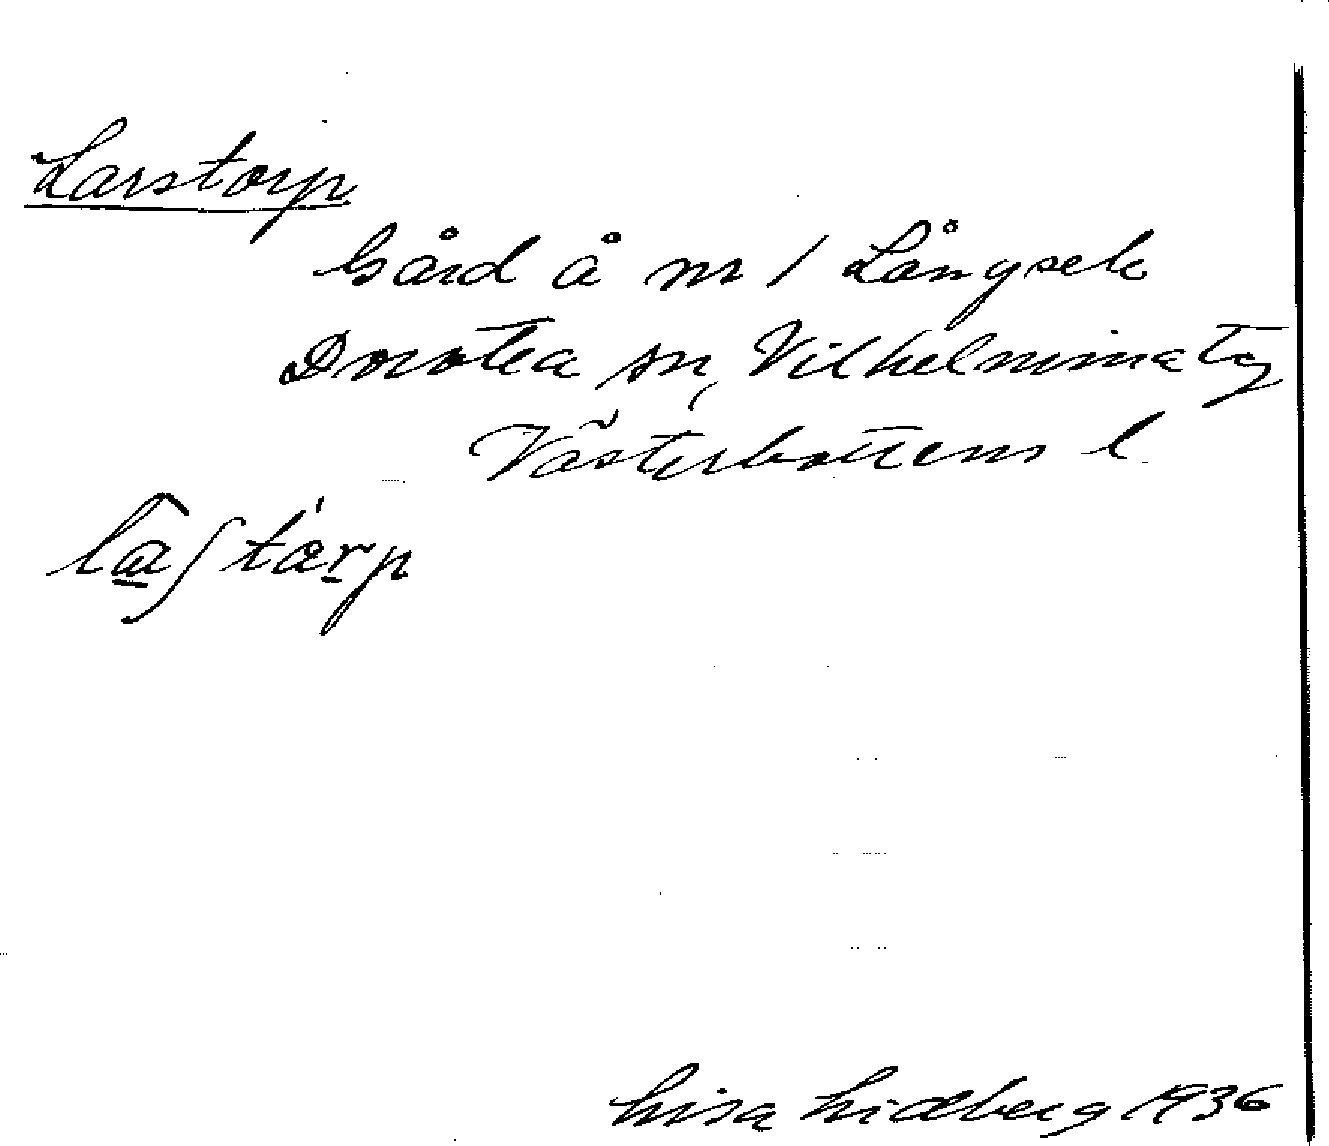 Larstorp
Gård å nr 1 Långsele
Dorotea sn, Vilhelmina tg
Västerbottens l
Lisa Lidberg 1936